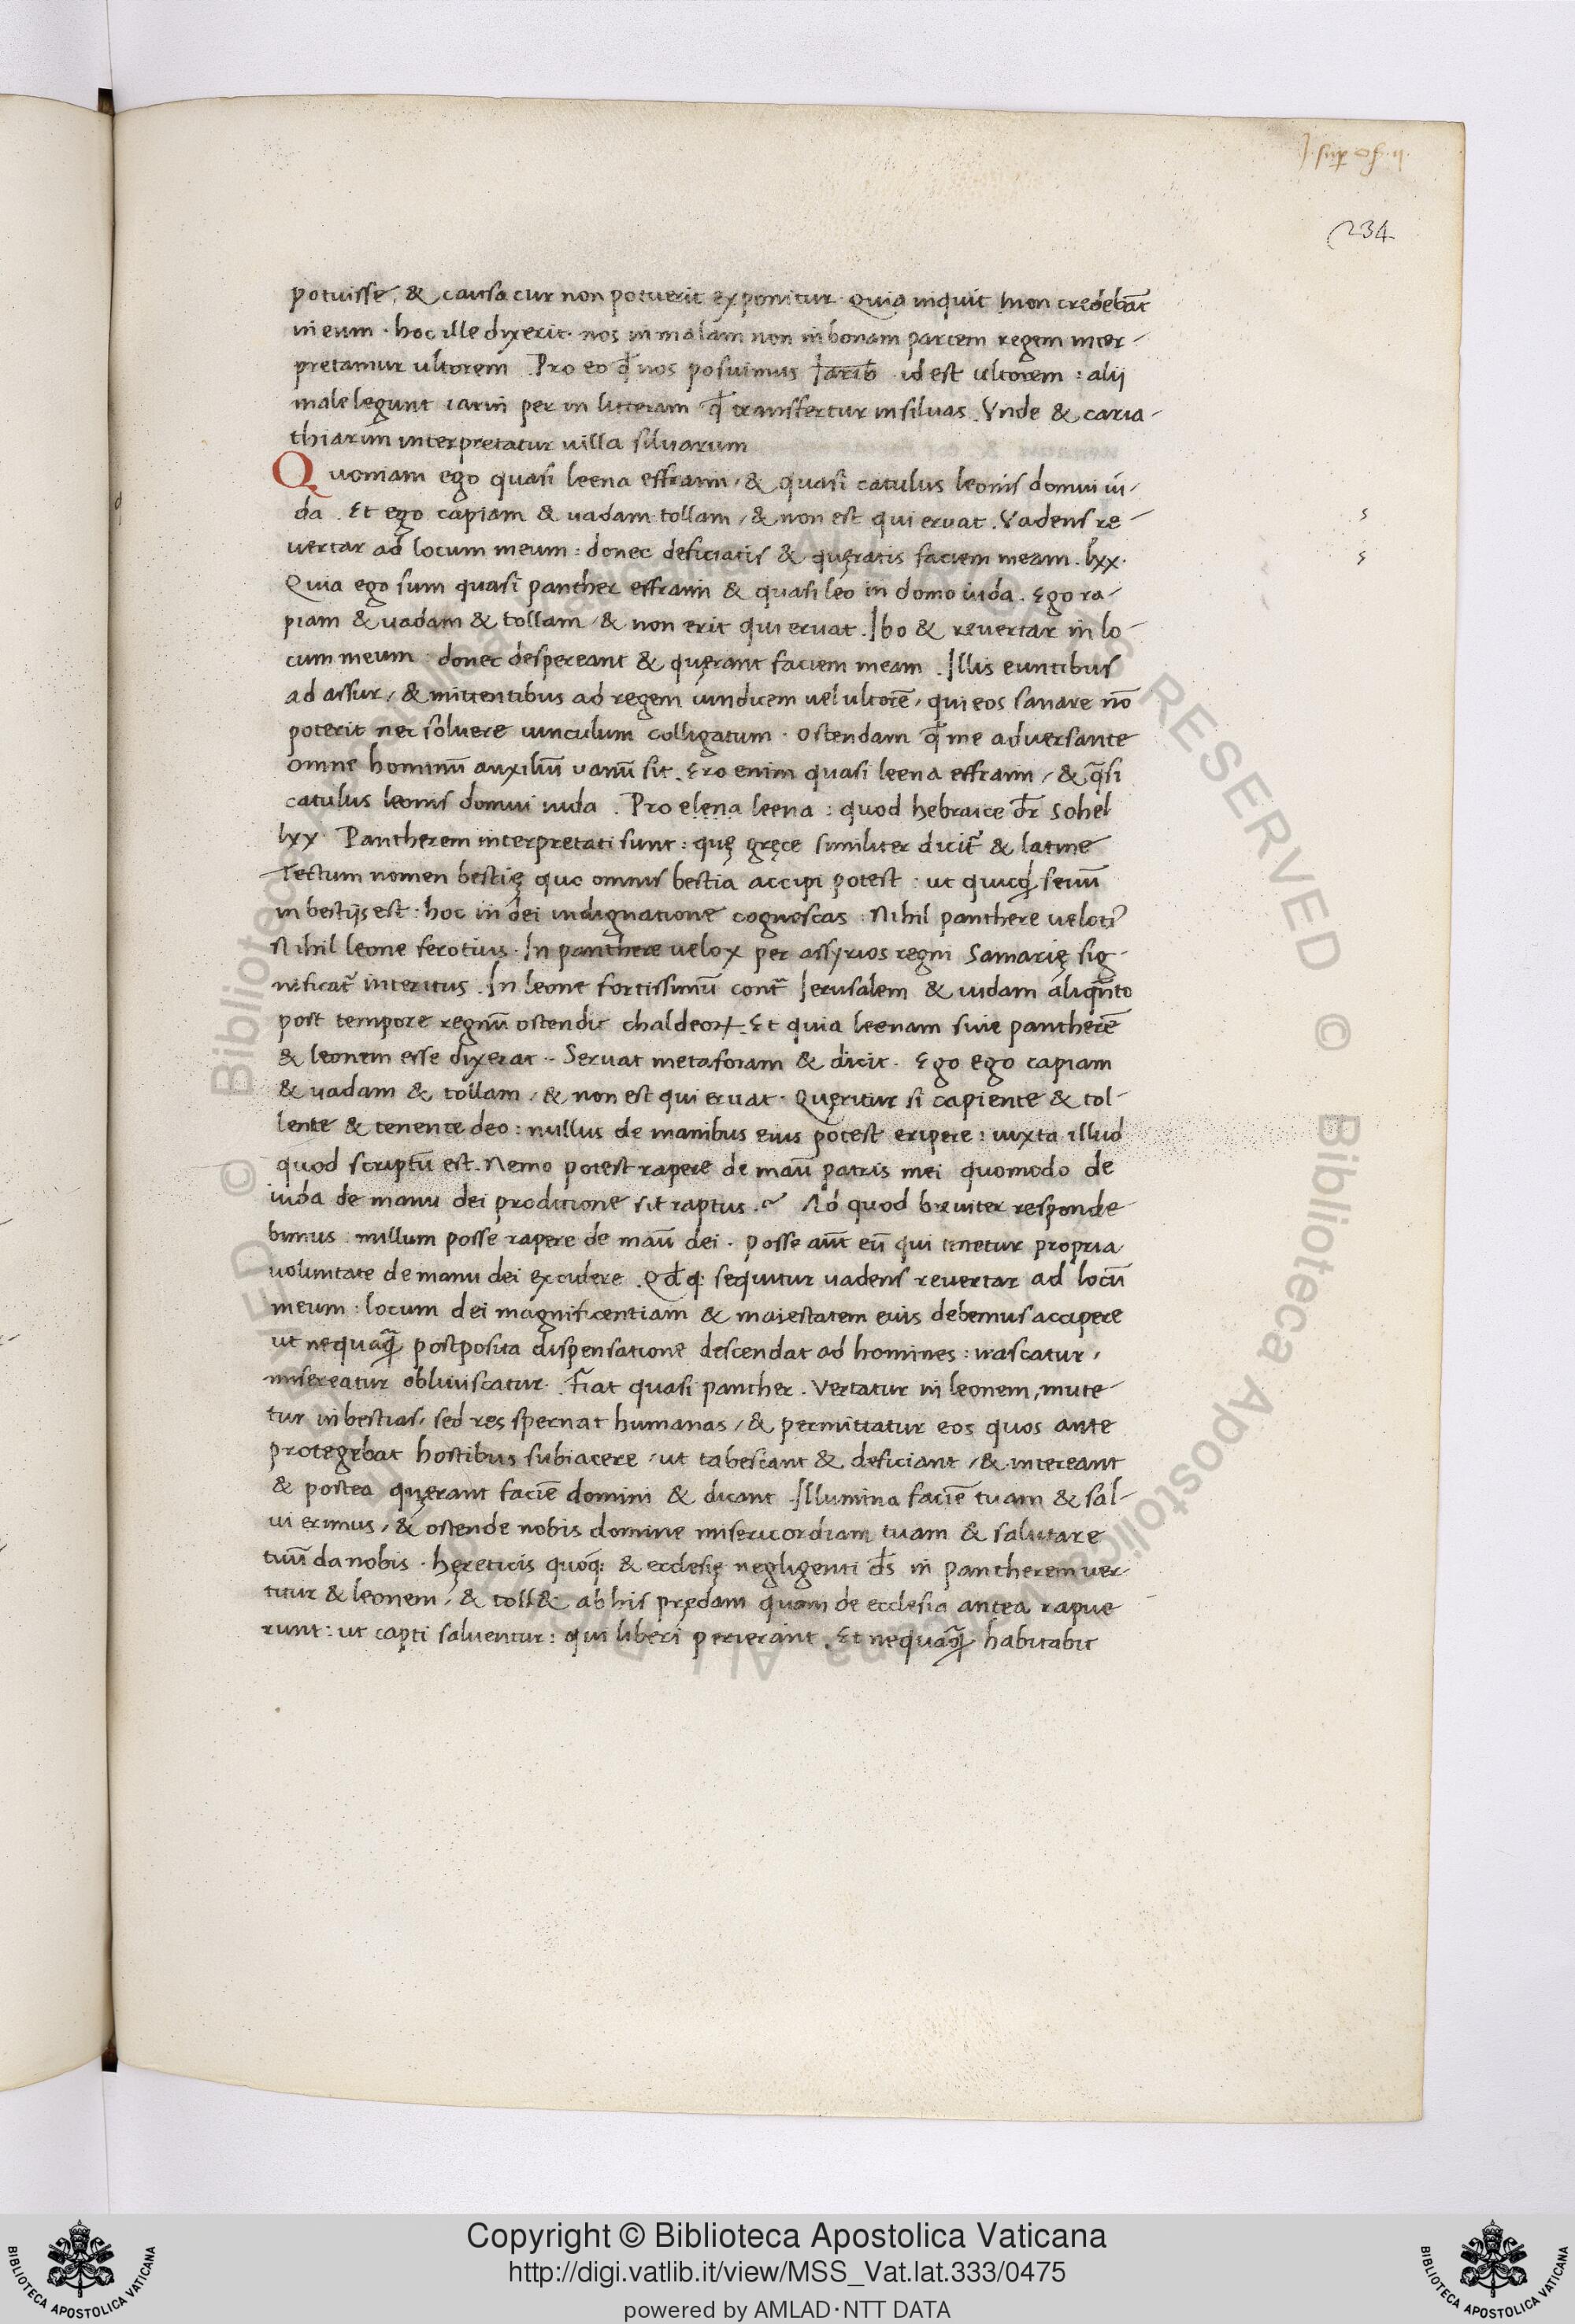 234
potuisse, & causa cur non potuerit exponitur. Quia inquit non credebāt
in eum. hoc ille dixerit. nos in malam non in bonam partem regem inter-
pretamur ultorem. Pro eo qđ nos posuimus Iarib. id est ultorem: alij
male legunt iarin per in litteram qđ transfertur in siluas. Vnde & caria-
thiarim interpretatur uilla siluarum
Quoniam ego quasi leena effraim, & quasi catulus leonis domui iu-
da. Et ego capiam & uadam tollam, & non est qui eruat. Vadens re-
uertar ad locum meum: donec deficiatis & quęratis faciem meam. lxx.
Quia ego sum quasi panther effraim & quasi leo in domo iuda. Ego ra-
piam & uadam & tollam, & non erit qui eruat. Ibo & reuertar in lo-
cum meum: donec despereant & quęrant faciem meam. Illis euntibus
ad assur, & mittentibus ad regem uindicem uel ultorē, qui eos sanare nō
poterit nec soluere uinculum colligatum. Ostendam qđ me aduersante
omne hominū auxiliū uanū sit. Ero enim quasi leena effraim, & q̄si
catulus leonis domui iuda. Pro elena leena: quod hebraice dr̄ sohel
lxx. Pantherem interpretati sunt: quę gręce similiter dicit̄ & latine
Tectum nomen bestię quo omnis bestia accipi potest: ut quicq̣d seuū
in bestijs est: hoc in dei indignatione cognoscas. Nihil panthere ueloti9
Nihil leone ferotius. In panthere uelox per assyrios regni Samarię sig-
nificat̄ interitus. In leone fortissimū cont̄ Ierusalem & iudam aliqn̄to
post tempore regnū ostendit chaldeoꝝ. Et quia leenam siue pantherē
& leonem esse dixerat.. Seruat metaforam & dicit. Ego ego capiam
& uadam & tollam, & non est qui eruat. Quęritur si capiente & tol-
lente & tenente deo: nullus de manibus eius potest eripere: iuxta illud
quod scriptū est. Nemo potest rapere de manū patris mei quomodo de
iuda de manu dei proditione sit raptus. ~ Ad quod breuiter responde
bimus: nullum posse rapere de manū dei. posse aūt eū qui tenetur propria
uoluntate de manu dei excidere. Qđq: sequitur uadens reuertar ad locū
meum: locum dei magnificentiam & maiestatem eius debemus accipere
ut nequaq̄ postposita dispensatione descendat ad homines: irascatur,
misereatur obliuiscatur. Fiat quasi panther. Vertatur in leonem, mute
tur in bestias, sed res spernat humanas, & permittatur eos quos ante
protegebat hostibus subiacere, ut tabescant & deficiant, & intereant
& postea quęrant faciē domini & dicant. Illumina faciē tuam & sal-
ui erimus, & ostende nobis domine misericordiam tuam & salutare
tuū da nobis. hęreticis quoq: & ecclesię negligenti ds̄ in pantherem uer-
titur & leonem, & toll& ab his prędam quam de ecclesia antea rapue
runt: ut capti saluentur: qui liberi perierant. Et nequaq̄ habitabit
s
s
Copyright © Biblioteca Apostolica Vaticana
http://digi.vatlib.it/view/MSS_Vat.lat.333/0475
powered by AMLAD·NTT DATA
BIBLIOTECA APOSTOLICA VATICANA
BIBLIOTECA APOSTOLICA VATICANA